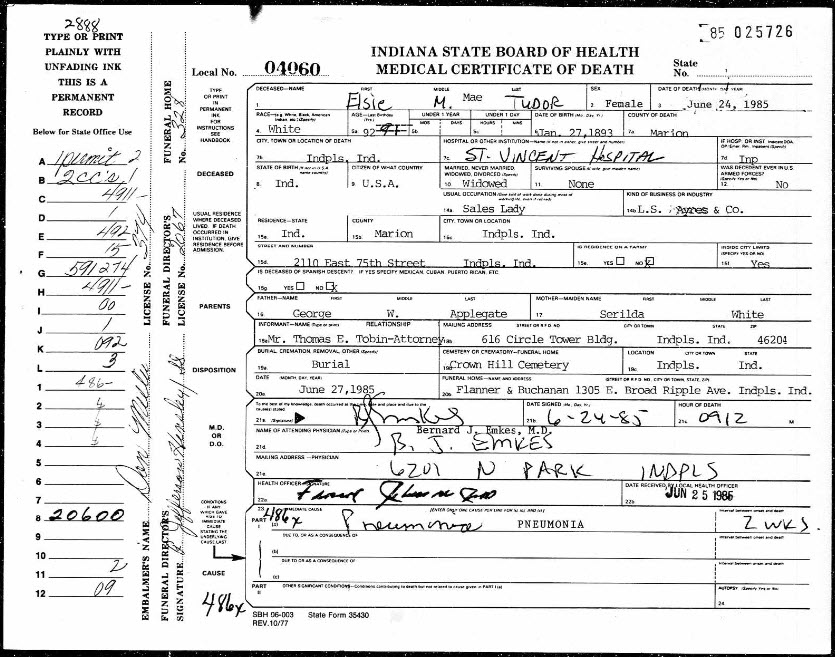 2888
TYPE OR PRINT
PLAINLY WITH
UNFADING INK
THIS IS A
PERMANENT
RECORD
Below for State Office Use
85 025726
INDIANA STATE BOARD OF HEALTH
MEDICAL CERTIFICATE OF DEATH
Local No. 04060
State No.
FUNERAL HOME No. 328
TYPE OR PRINT IN PERMANENT INK FOR INSTRUCTIONS SEE HANDBOOK
DECEASED—NAME FIRST MIDDLE LAST SEX DATE OF DEATH (MONTH, DAY, YEAR)
1. Elsie M. Mae TUDOR 2 Female 3 June 24, 1985
RACE AGE—Last Birthday UNDER 1 YEAR UNDER 1 DAY DATE OF BIRTH (Mo., Day, Yr.) COUNTY OF DEATH
MOS DAYS HOURS MINS
4. White 5a 92 91 5b 5c Jan. 27,1893 7a Marion
CITY, TOWN OR LOCATION OF DEATH HOSPITAL OR OTHER INSTITUTION—Name (If not in either, give street and number)
7b Indpls, Ind. 7c ST. VINCENT HOSPITAL 7d Inp
DECEASED
STATE OF BIRTH CITIZEN OF WHAT COUNTRY MARRIED, NEVER MARRIED, WIDOWED, DIVORCED (Specify) SURVIVING SPOUSE WAS DECEDENT EVER IN U.S. ARMED FORCES? (Specify Yes or No)
8. Ind. 9 U.S.A. 10 Widowed 11. None 12. No
USUAL OCCUPATION KIND OF BUSINESS OR INDUSTRY
14a Sales Lady 14b L.S. Ayres & Co.
USUAL RESIDENCE WHERE DECEASED LIVED. IF DEATH OCCURRED IN INSTITUTION, GIVE RESIDENCE BEFORE ADMISSION.
RESIDENCE—STATE COUNTY CITY, TOWN OR LOCATION
15a. Ind. 15b. Marion 15c Indpls. Ind.
STREET AND NUMBER IS RESIDENCE ON A FARM? INSIDE CITY LIMITS (SPECIFY YES OR NO)
15d. 2110 East 75th Street Indpls. Ind. 15e. YES NO X 15f. Yes
IS DECEASED OF SPANISH DESCENT? IF YES SPECIFY MEXICAN, CUBAN, PUERTO RICAN, ETC.
15g YES NO X
PARENTS
FATHER—NAME FIRST MIDDLE LAST MOTHER—MAIDEN NAME FIRST MIDDLE LAST
16. George W. Applegate 17 Serilda White
INFORMANT—NAME (Type or print) RELATIONSHIP MAILING ADDRESS STREET OR R.F.D. NO CITY OR TOWN STATE ZIP
18a Mr. Thomas E. Tobin-Attorney 18b 616 Circle Tower Bldg. Indpls. Ind. 46204
DISPOSITION
BURIAL, CREMATION, REMOVAL, OTHER (Specify) CEMETERY OR CREMATORY—FUNERAL HOME LOCATION CITY OR TOWN STATE
19a. Burial 19b Crown Hill Cemetery 19c Indpls. Ind.
DATE (MONTH, DAY, YEAR) FUNERAL HOME—NAME AND ADDRESS (STREET OR R.F.D. NO., CITY OR TOWN, STATE, ZIP)
20a June 27,1985 20b Flanner & Buchanan 1305 E. Broad Ripple Ave. Indpls. Ind.
M.D. OR D.O.
To the best of my knowledge, death occurred at the time, date and place and due to the cause(s) stated DATE SIGNED (Mo., Day, Yr.) HOUR OF DEATH
21a. (Signature) 21b 6-24-85 21c 0912 M
NAME OF ATTENDING PHYSICIAN (Type or Print) Bernard J. Emkes, M.D.
21d B. J. EMKES
MAILING ADDRESS—PHYSICIAN
21e 6201 N PARK INDPLS
HEALTH OFFICER—SIGNATURE DATE RECEIVED BY LOCAL HEALTH OFFICER
22a. 22b. JUN 25 1985
CONDITIONS IF ANY WHICH GAVE RISE TO IMMEDIATE CAUSE STATING THE UNDERLYING CAUSE LAST
23. IMMEDIATE CAUSE (ENTER ONLY ONE CAUSE PER LINE FOR (a), (b), AND (c)) Interval between onset and death
PART I 486x (a) Pneumonia PNEUMONIA 2 WKS.
DUE TO, OR AS A CONSEQUENCE OF Interval between onset and death
(b)
DUE TO OR AS A CONSEQUENCE OF Interval between onset and death
CAUSE (c)
PART II OTHER SIGNIFICANT CONDITIONS—Conditions contributing to death but not related to cause given in PART I (a) AUTOPSY (Specify Yes or No)
486x 24.
SBH 06-003 State Form 35430
REV.10/77
A 1 permit 2
B 2CC's 1
C 4911
D 1
E 492
F 15
G 591274
H 4911
I 00
J 1
K 092
L 3
1 486-
2 4
3
4
5
6
7
8 20600
9
10
11 2
12 09
EMBALMER'S NAME LICENSE No. 574
FUNERAL DIRECTOR'S SIGNATURE
FUNERAL DIRECTOR'S LICENSE No. 2067